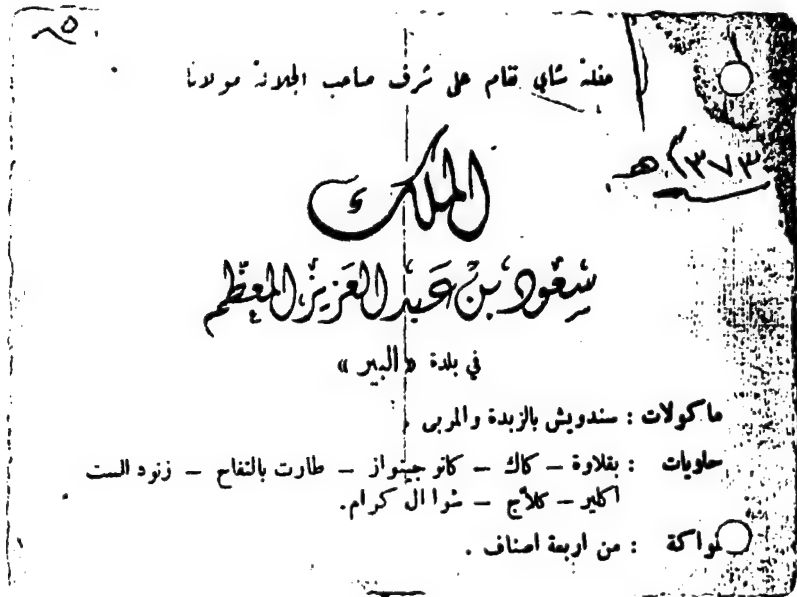 ٥
حفلة شاي تقام على شرف صاحب الجلالة مولانا
١٣٧٣ هـ
الملك
سعود بن عبد العزيز المعظم
في بلدة « البير »
ماكولات : سندويش بالزبدة والمربى .
حلويات : بقلاوة – كاك – كاتو جينواز – طارت بالتفاح – زنود الست
اكلير – كلاّج – شوا ال كرام.
فواكة : من اربعة اصناف .